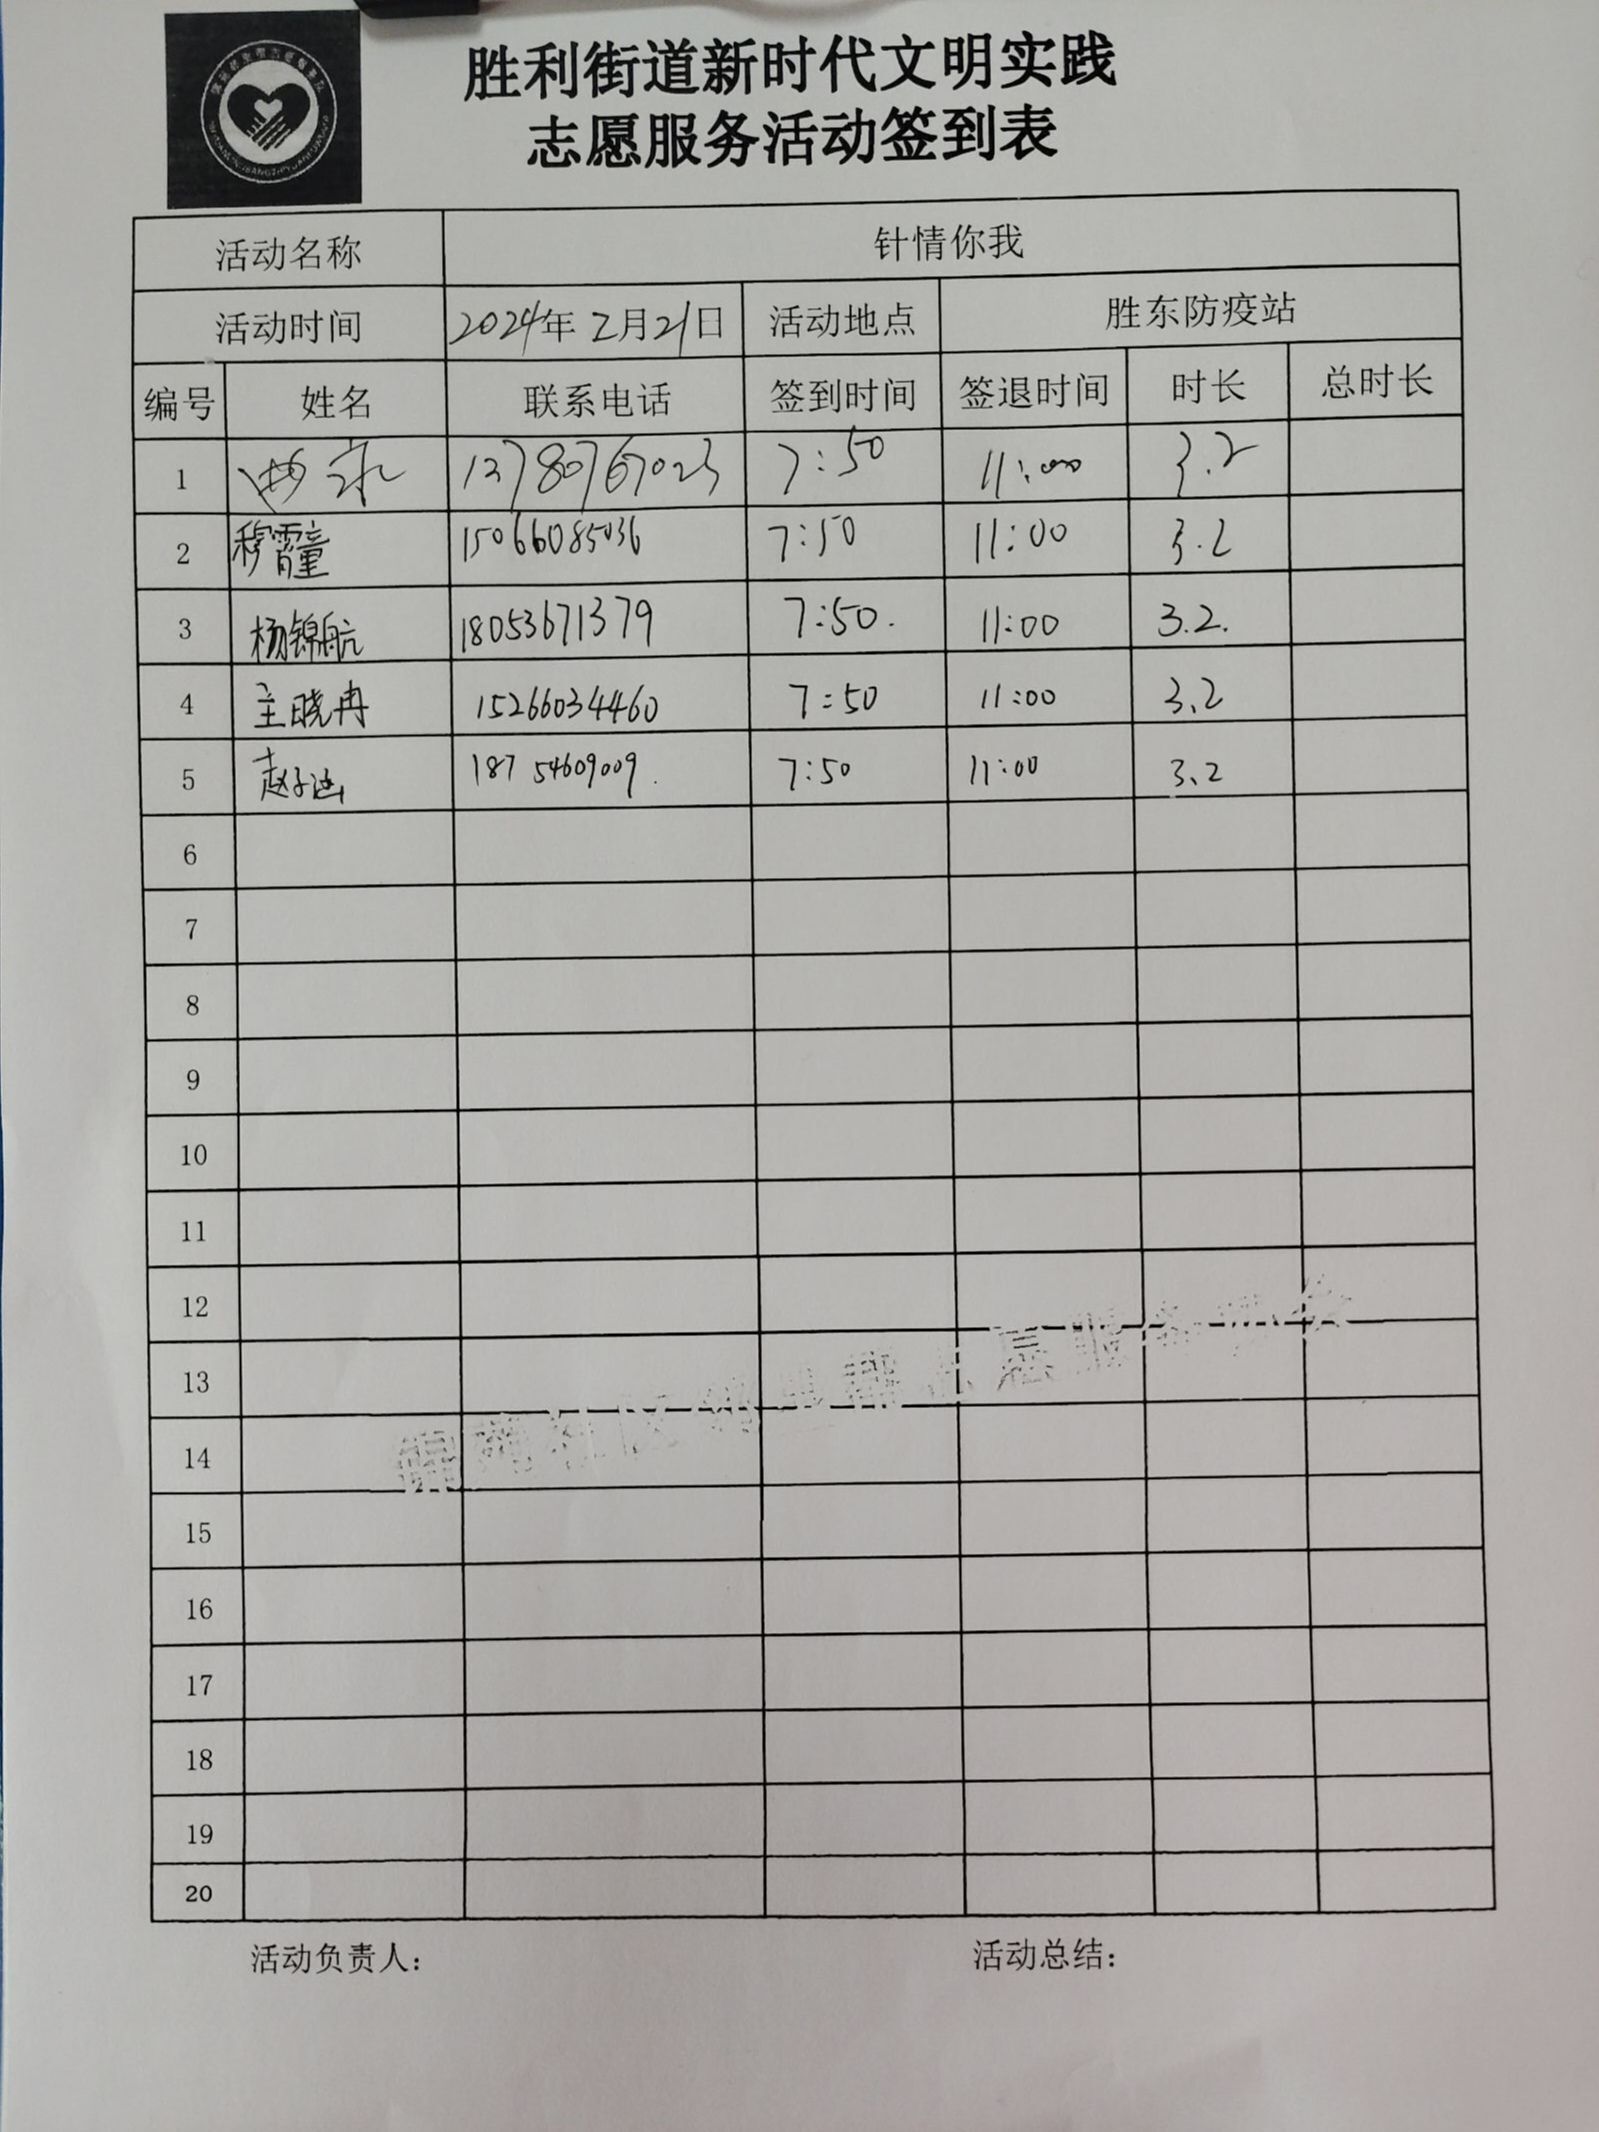 胜利街道新时代文明实践
志愿服务活动签到表
活动名称 针情你我
活动时间 2024年2月21日 活动地点 胜东防疫站
编号 姓名 联系电话 签到时间 签退时间 时长 总时长
1 13780767023 7:50 11:00 3.2
2 穆霄童 15066085036 7:50 11:00 3.2
3 杨锦航 18053671379 7:50. 11:00 3.2.
4 主晓冉 15266034460 7:50 11:00 3.2
5 赵子涵 187 54609009. 7:50 11:00 3.2
6
7
8
9
10
11
12
13
14
15
16
17
18
19
20
活动负责人： 活动总结：